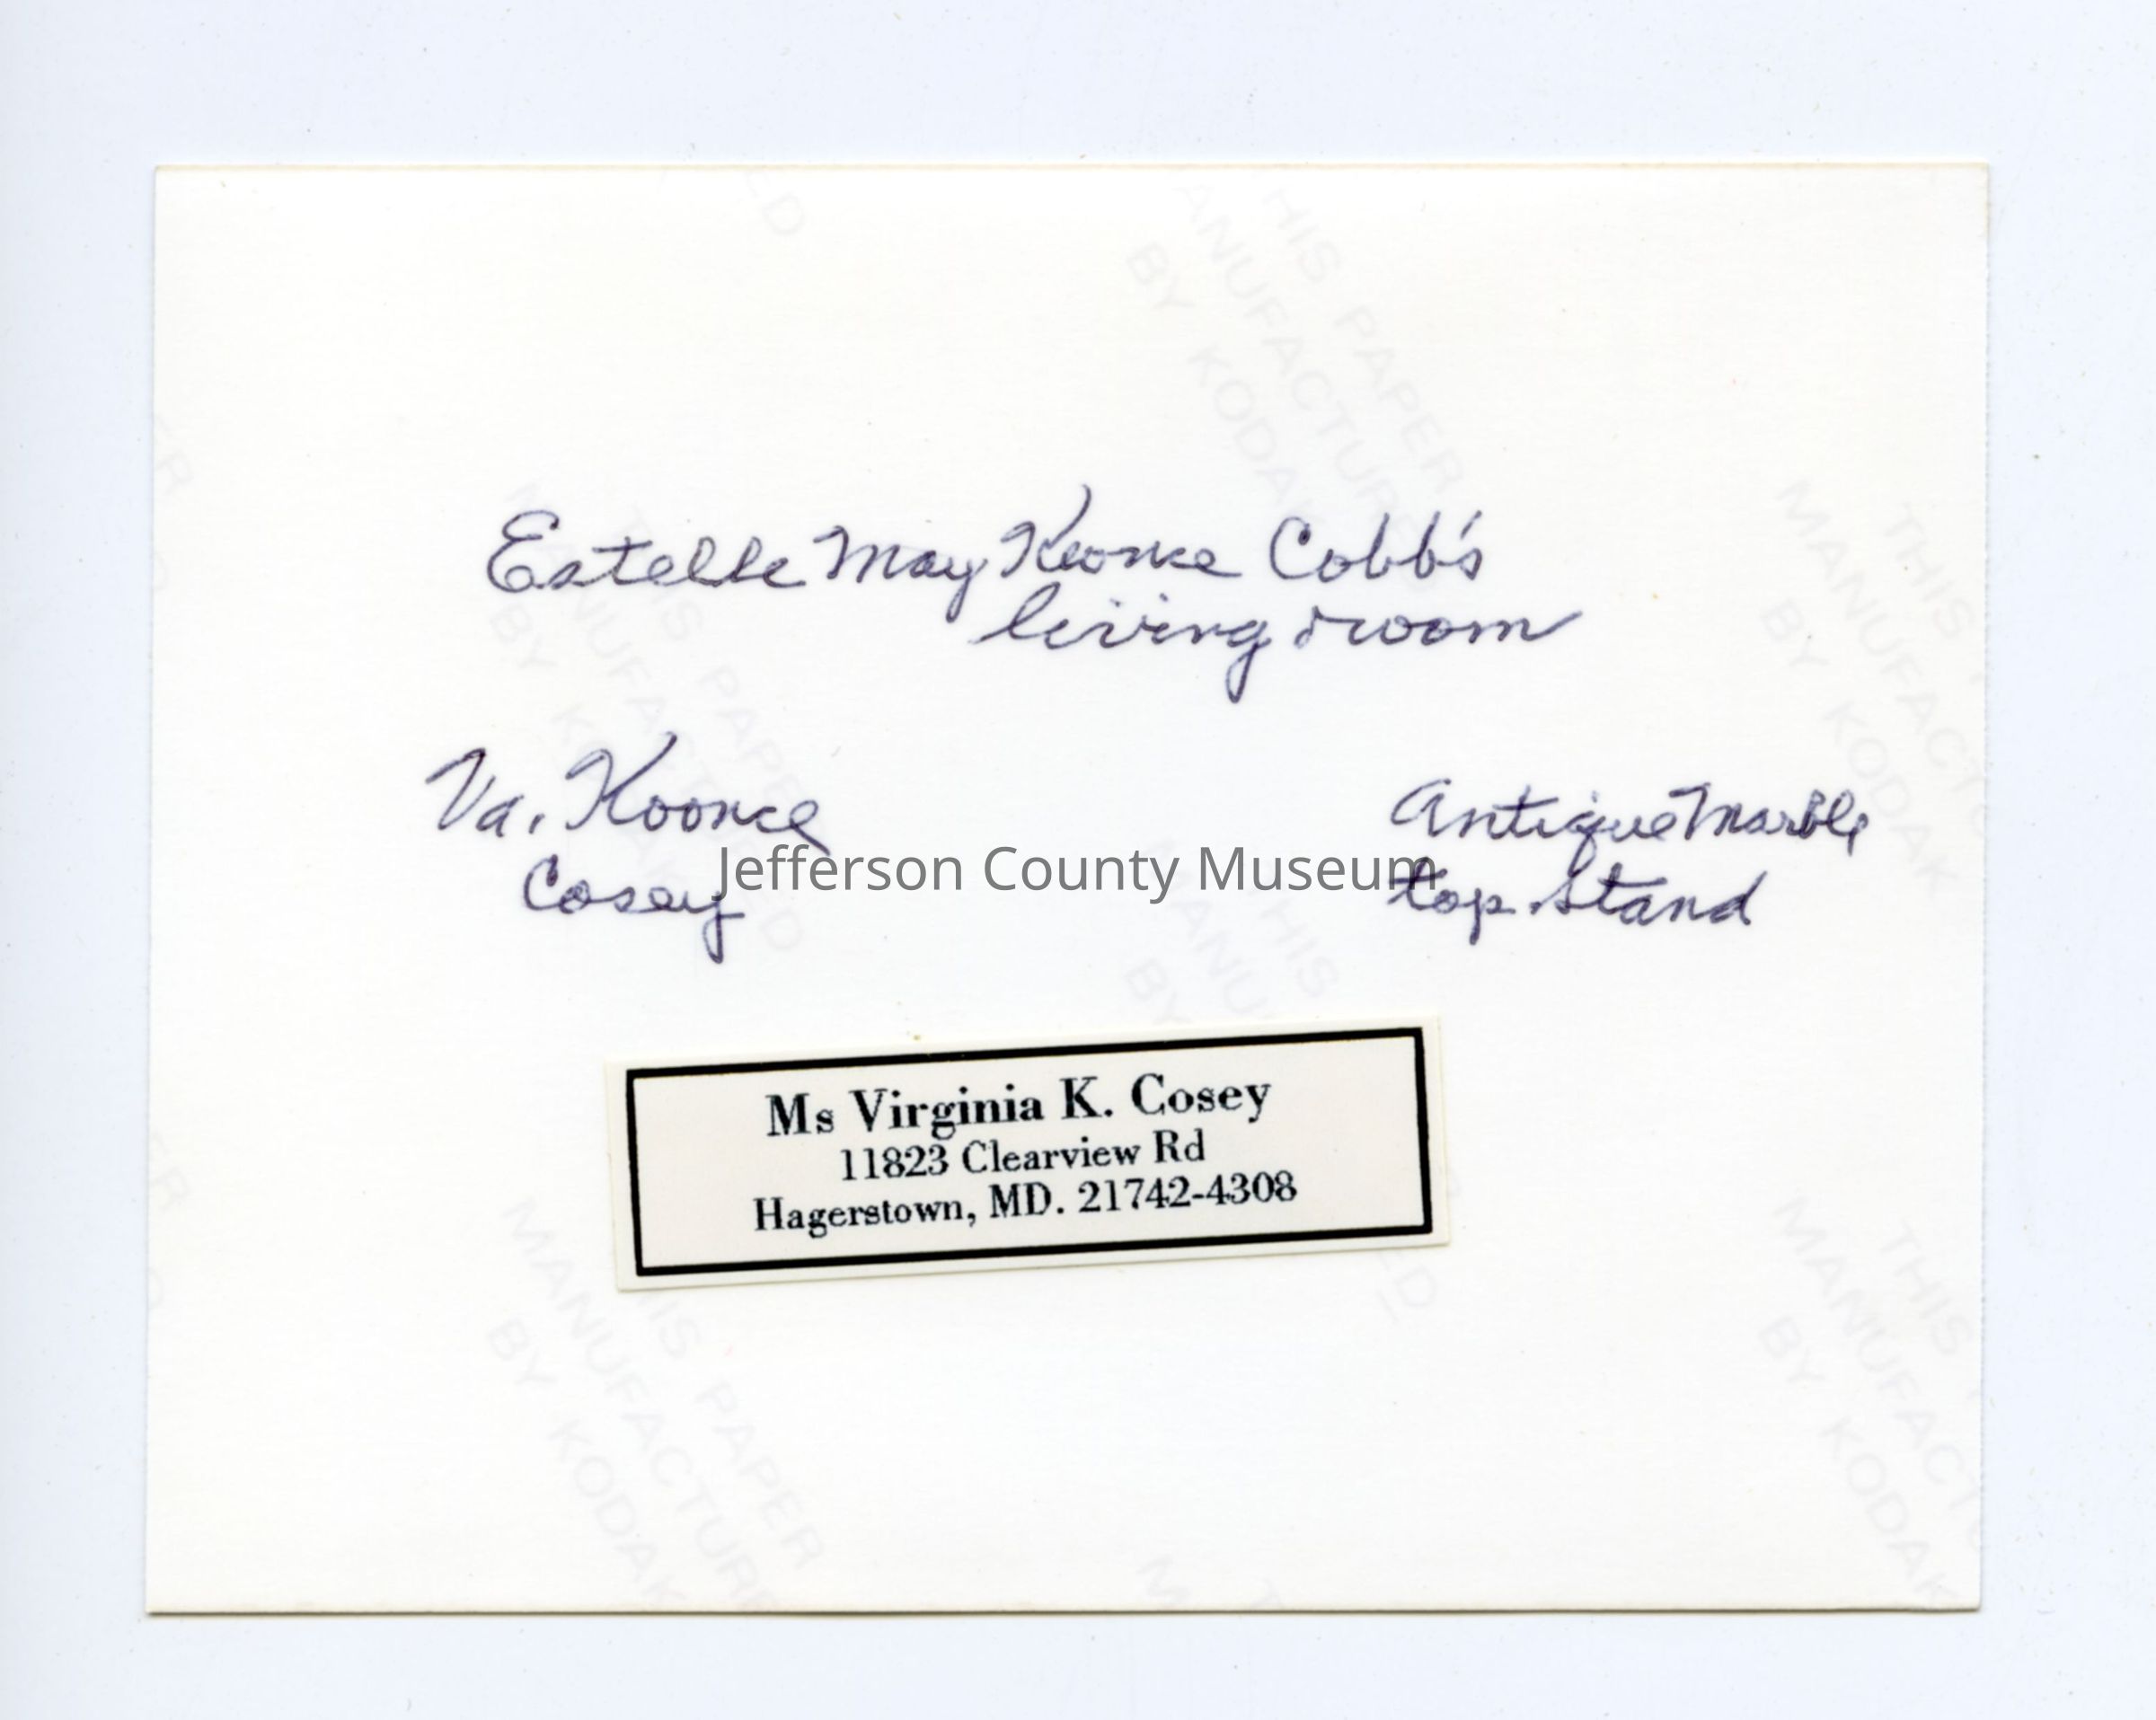 Estelle May Koonce Cobb's
living room
Va. Koonce
Cosey
Antique Marble
top stand
Jefferson County Museum
Ms Virginia K. Cosey
11823 Clearview Rd
Hagerstown, MD. 21742-4308
THIS PAPER
MANUFACTURED
BY KODAK